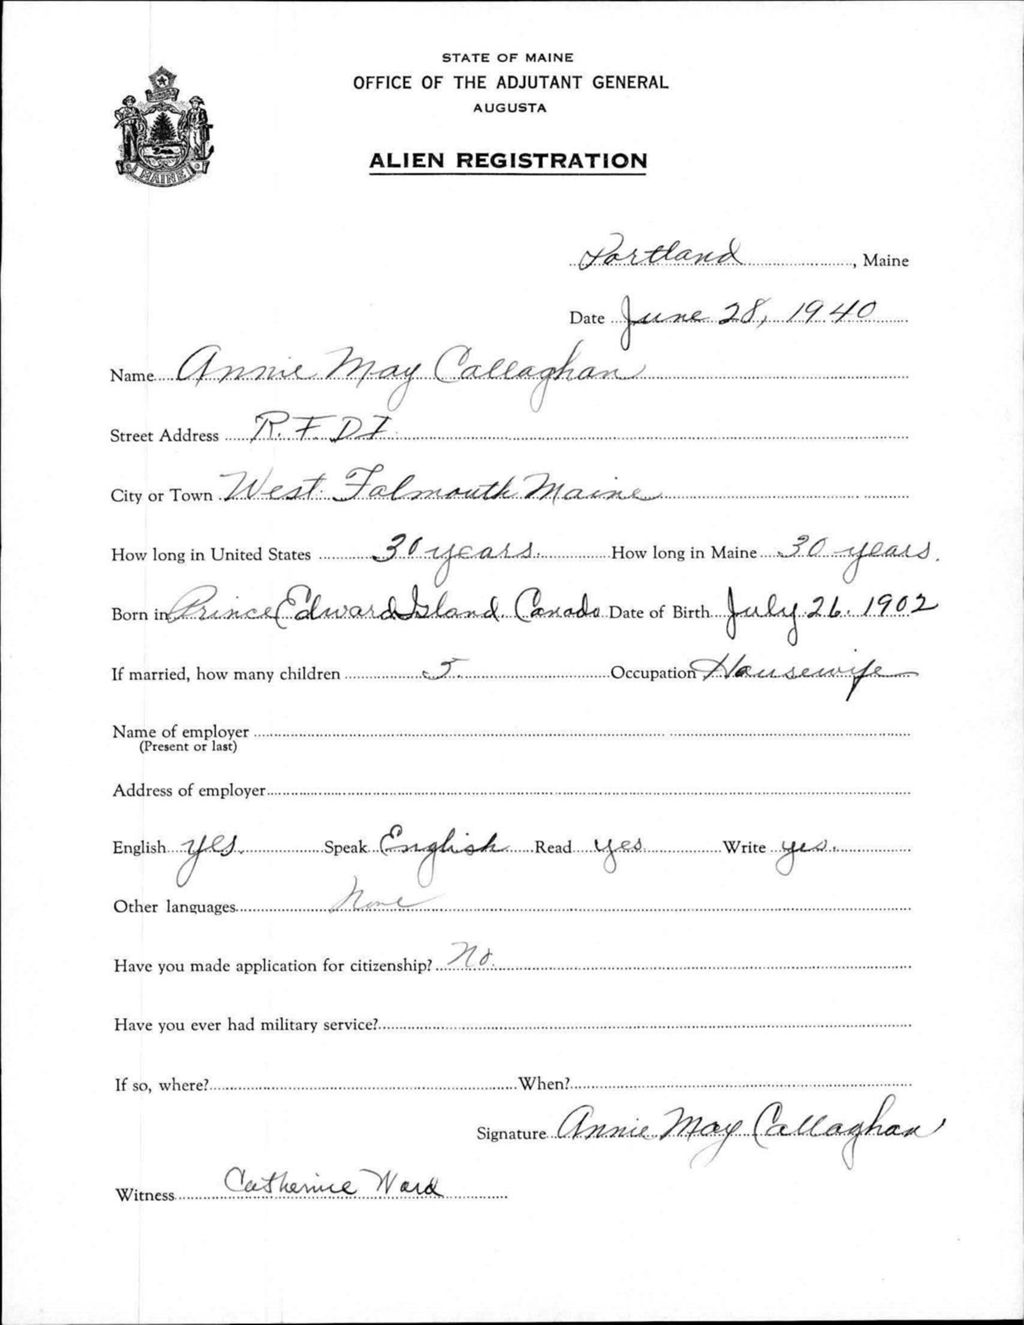 STATE OF MAINE
OFFICE OF THE ADJUTANT GENERAL
AUGUSTA
ALIEN REGISTRATION
MAINE
Portland, Maine
Date June 28, 1940
Name Annie May Callaghan
Street Address R.F.D I
City or Town West Falmouth Maine
How long in United States 30 years. How long in Maine 30 years.
Born in Prince Edward Island Canada Date of Birth July 26. 1902
If married, how many children 5 Occupation Housewife
Name of employer
(Present or last)
Address of employer
English yes. Speak English Read yes Write yes.
Other languages None
Have you made application for citizenship? No
Have you ever had military service?
If so, where? When?
Signature Annie May Callaghan
Witness Catherine Ward